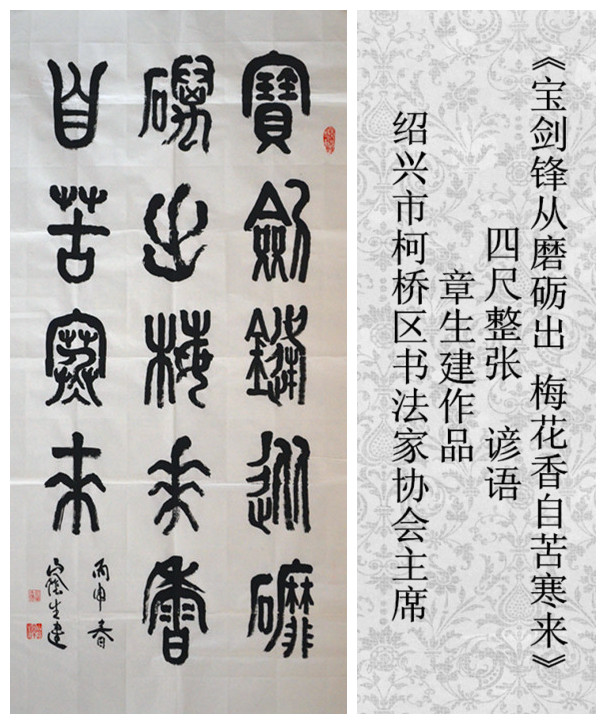 《宝剑锋从磨砺出 梅花香自苦寒来》
四尺整张 谚语
章生建作品
绍兴市柯桥区书法家协会主席
寶劍鋒從磨
礪出梅花香
自苦寒來
丙申春
山陰生建